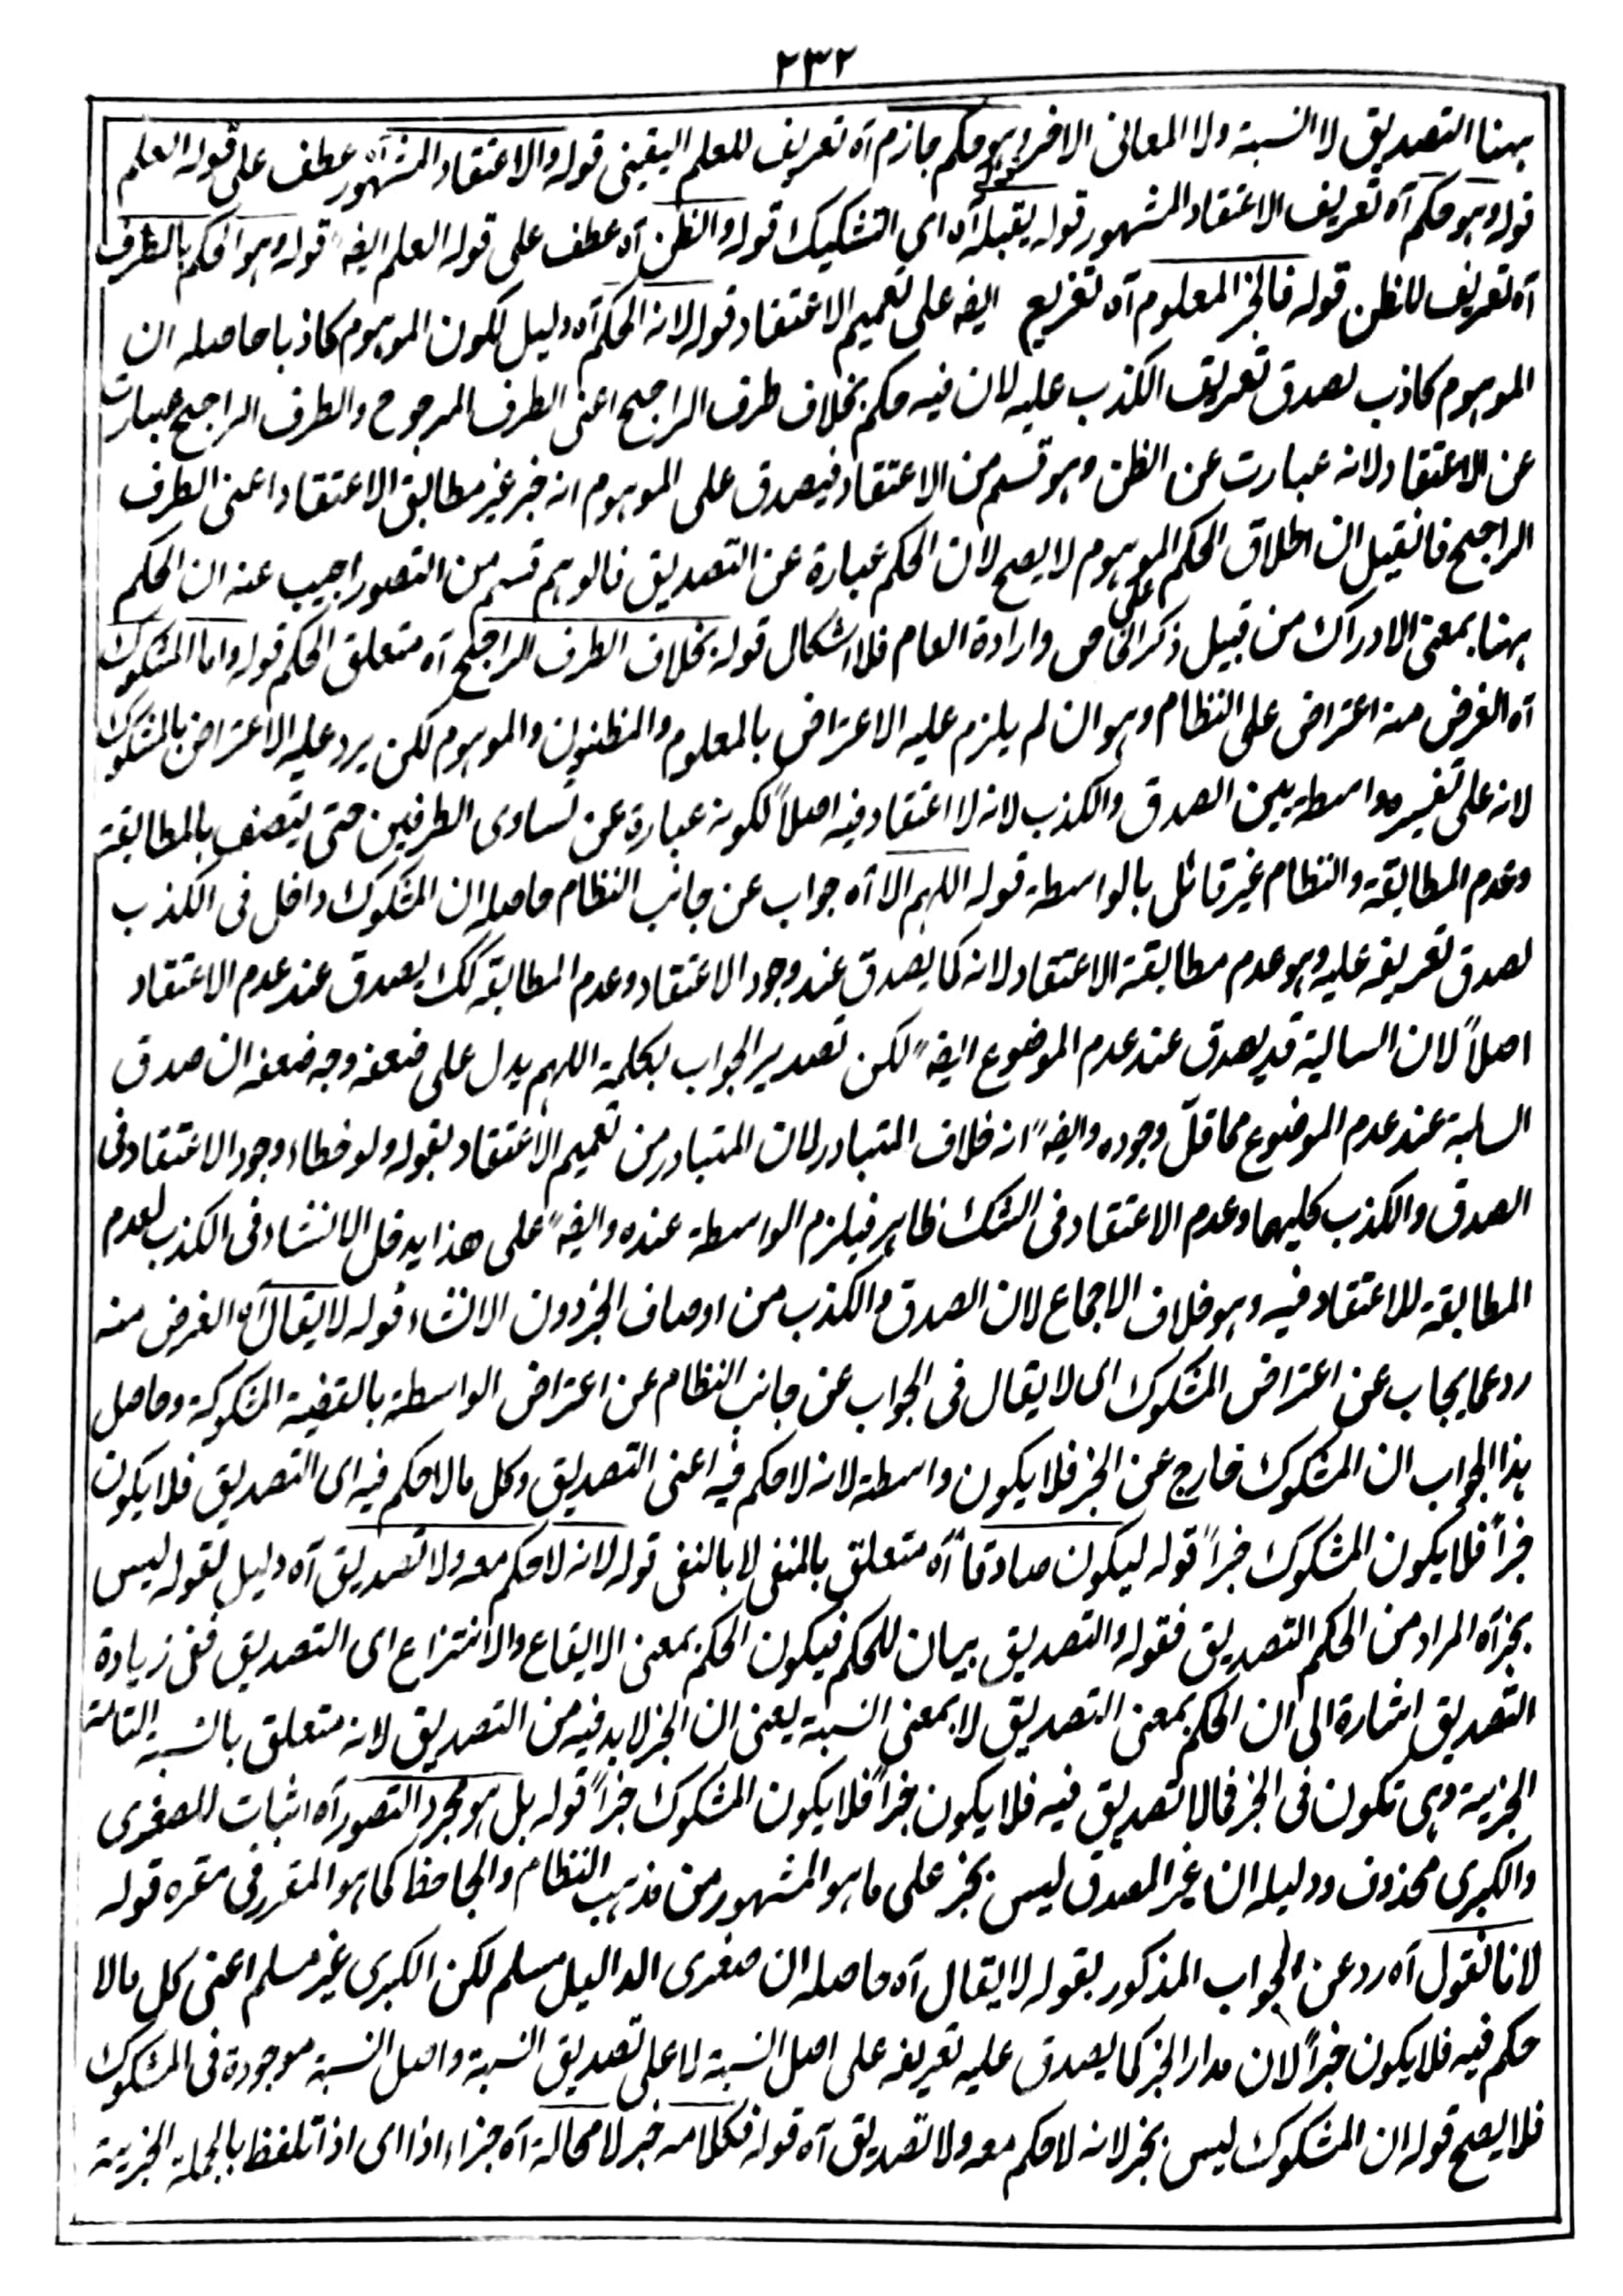 ٢٣٢
ہہنا التصدیق لا النسبة ولا المعانی الاخر وہو حکم جازم آہ تعریف للعلم الیقینی قولہ والاعتقاد المشہور آہ عطف علی قولہ العلم
قولہ وہو حکم آہ تعریف الاعتقاد المشہور قولہ یقبلہ آہ ای التشکیک قولہ والظن آہ عطف علی قولہ العلم ایضہ قولہ وہو الحکم بالطرف
آہ تعریف للظن قولہ فالخبر المعلوم آہ تفریع ایضہ علی تعمیم الاعتقاد قولہ لانہ الحکم آہ دلیل لکون الموہوم کاذبا حاصلہ ان
الموہوم کاذب لصدق تعریف الکذب علیہ لان فیہ حکم بخلاف طرف الراجح اعنی الطرف المرجوح والطرف الراجح عبارت
عن الاعتقاد لانہ عبارت عن الظن وہو قسم من الاعتقاد فیصدق علی الموہوم انہ خبر غیر مطابق الاعتقاد اعنی الطرف
الراجح فانقیل ان اطلاق الحکم علی الموہوم لا یصح لان الحکم عبارة عن التصدیق فالوہم قسم من التصور اجیب عنہ ان الحکم
ہہنا بمعنی الادراک من قبیل ذکر الخاص وارادة العام فلا اشکال قولہ بخلاف الطرف الراجح آہ متعلق الحکم قولہ واما المشکوک
آہ الغرض منہ اعتراض علی النظام وہو ان لم یلزم علیہ الاعتراض بالمعلوم والمظنون والموہوم لکن یرد علیہ الاعتراض بالمشکوک
لانہ علی تفسیرہ واسطة بین الصدق والکذب لانہ لا اعتقاد فیہ اصلاً لکونہ عبارة عن تساوی الطرفین حتی یتصف بالمطابقة
وعدم المطابقة والنظام غیر قائل بالواسطة قولہ اللہم الا آہ جواب عن جانب النظام حاصلہ ان المشکوک داخل فی الکذب
لصدق تعریفہ علیہ وہو عدم مطابقة الاعتقاد لانہ کما یصدق عند وجود الاعتقاد وعدم المطابقة کک یصدق عند عدم الاعتقاد
اصلاً لان السالبة قد یصدق عند عدم الموضوع ایضہ لکن تصدیر الجواب بکلمة اللہم یدل علی ضعفہ وجہ ضعفہ ان صدق
السالبة عند عدم الموضوع مما قلّ وجودہ وایضہ انہ خلاف المتبادر لان المتبادر من تعمیم الاعتقاد بقولہ ولو خطاء وجود الاعتقاد فی
الصدق والکذب کلیہما وعدم الاعتقاد فی الشک ظاہر فیلزم الواسطة عندہ وایضہ علی ھذا یدخل الانشاء فی الکذب لعدم
المطابقة للاعتقاد فیہ وہو خلاف الاجماع لان الصدق والکذب من اوصاف الخبر دون الانشاء قولہ لا یقال آہ الغرض منہ
رد عما یجاب عن اعتراض المشکوک ای لا یقال فی الجواب عن جانب النظام عن اعتراض الواسطة بالقضیة المشکوکة وحاصل
ہذا الجواب ان المشکوک خارج عن الخبر فلا یکون واسطة لانہ لا حکم فیہ اعنی التصدیق وکل ما لا حکم فیہ ای التصدیق فلا یکون
خبراً فلا یکون المشکوک خبراً قولہ لیکون صادقا آہ متعلق بالمنفی لا بالنفی قولہ لانہ لا حکم معہ ولا تصدیق آہ دلیل لقولہ لیس
بخبر آہ المراد من الحکم التصدیق فقولہ والتصدیق بیان للحکم فیکون الحکم بمعنی الایقاع والانتزاع ای التصدیق ففی زیادة
التصدیق اشارة الی ان الحکم بمعنی التصدیق لا بمعنی النسبة یعنی ان الخبر لا بد فیہ من التصدیق لانہ متعلق بالنسبة التامة
الخبریة وہی تکون فی الخبر فما لا تصدیق فیہ فلا یکون خبراً فلا یکون المشکوک خبراً قولہ بل ہو مجرد التصور آہ اثبات للصغری
والکبری محذوف ودلیلہ ان غیر المصدق لیس بخبر علی ما ہو المشہور من مذہب النظام والجاحظ کما ہو المقرر فی مقرہ قولہ
لانا نقول آہ رد عن الجواب المذکور بقولہ لا یقال آہ حاصلہ ان صغری الدلیل مسلم لکن الکبری غیر مسلم اعنی کل ما لا
حکم فیہ فلا یکون خبراً لان مدار الخبر کما یصدق علیہ تعریفہ علی اصل النسبة لا علی تصدیق النسبة واصل النسبة موجودة فی المشکوک
فلا یصح قولہ ان المشکوک لیس بخبر لانہ لا حکم معہ ولا تصدیق آہ قولہ فکلامہ خبر لا محالة آہ جزاء اذا ای اذا تلفظ بالجملة الخبریة